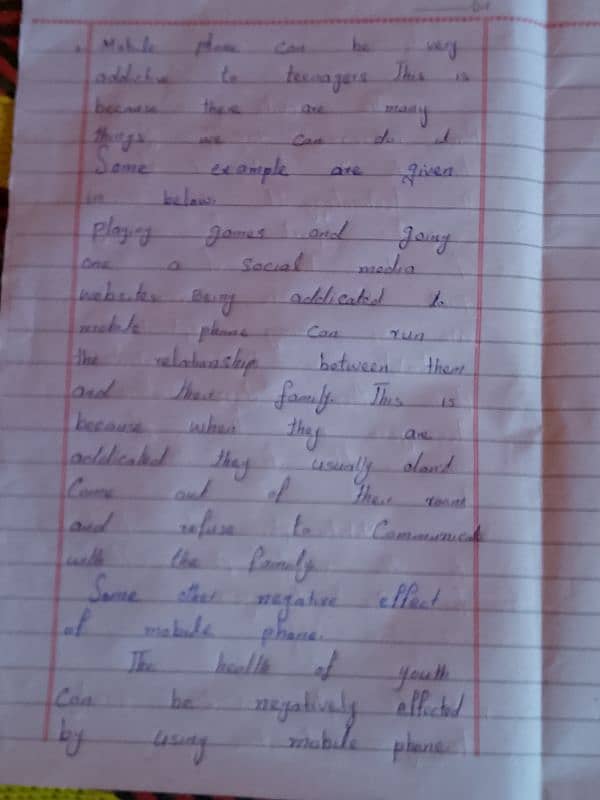 Mobile phone can be very
addictive to teenagers This is
because there are many
things we can do it.
Some example are given
in below.
Playing games and going
one a social media
websites Being addicated to
mobile phone can run
the relationship between them
and their family. This is
because when they are
addicated they usually don't
Come out of their room
and refuse to Communicate
with the family
Some other negative effect
of mobile phone.
The health of youth
Can be negatively effected
by using mobile phone